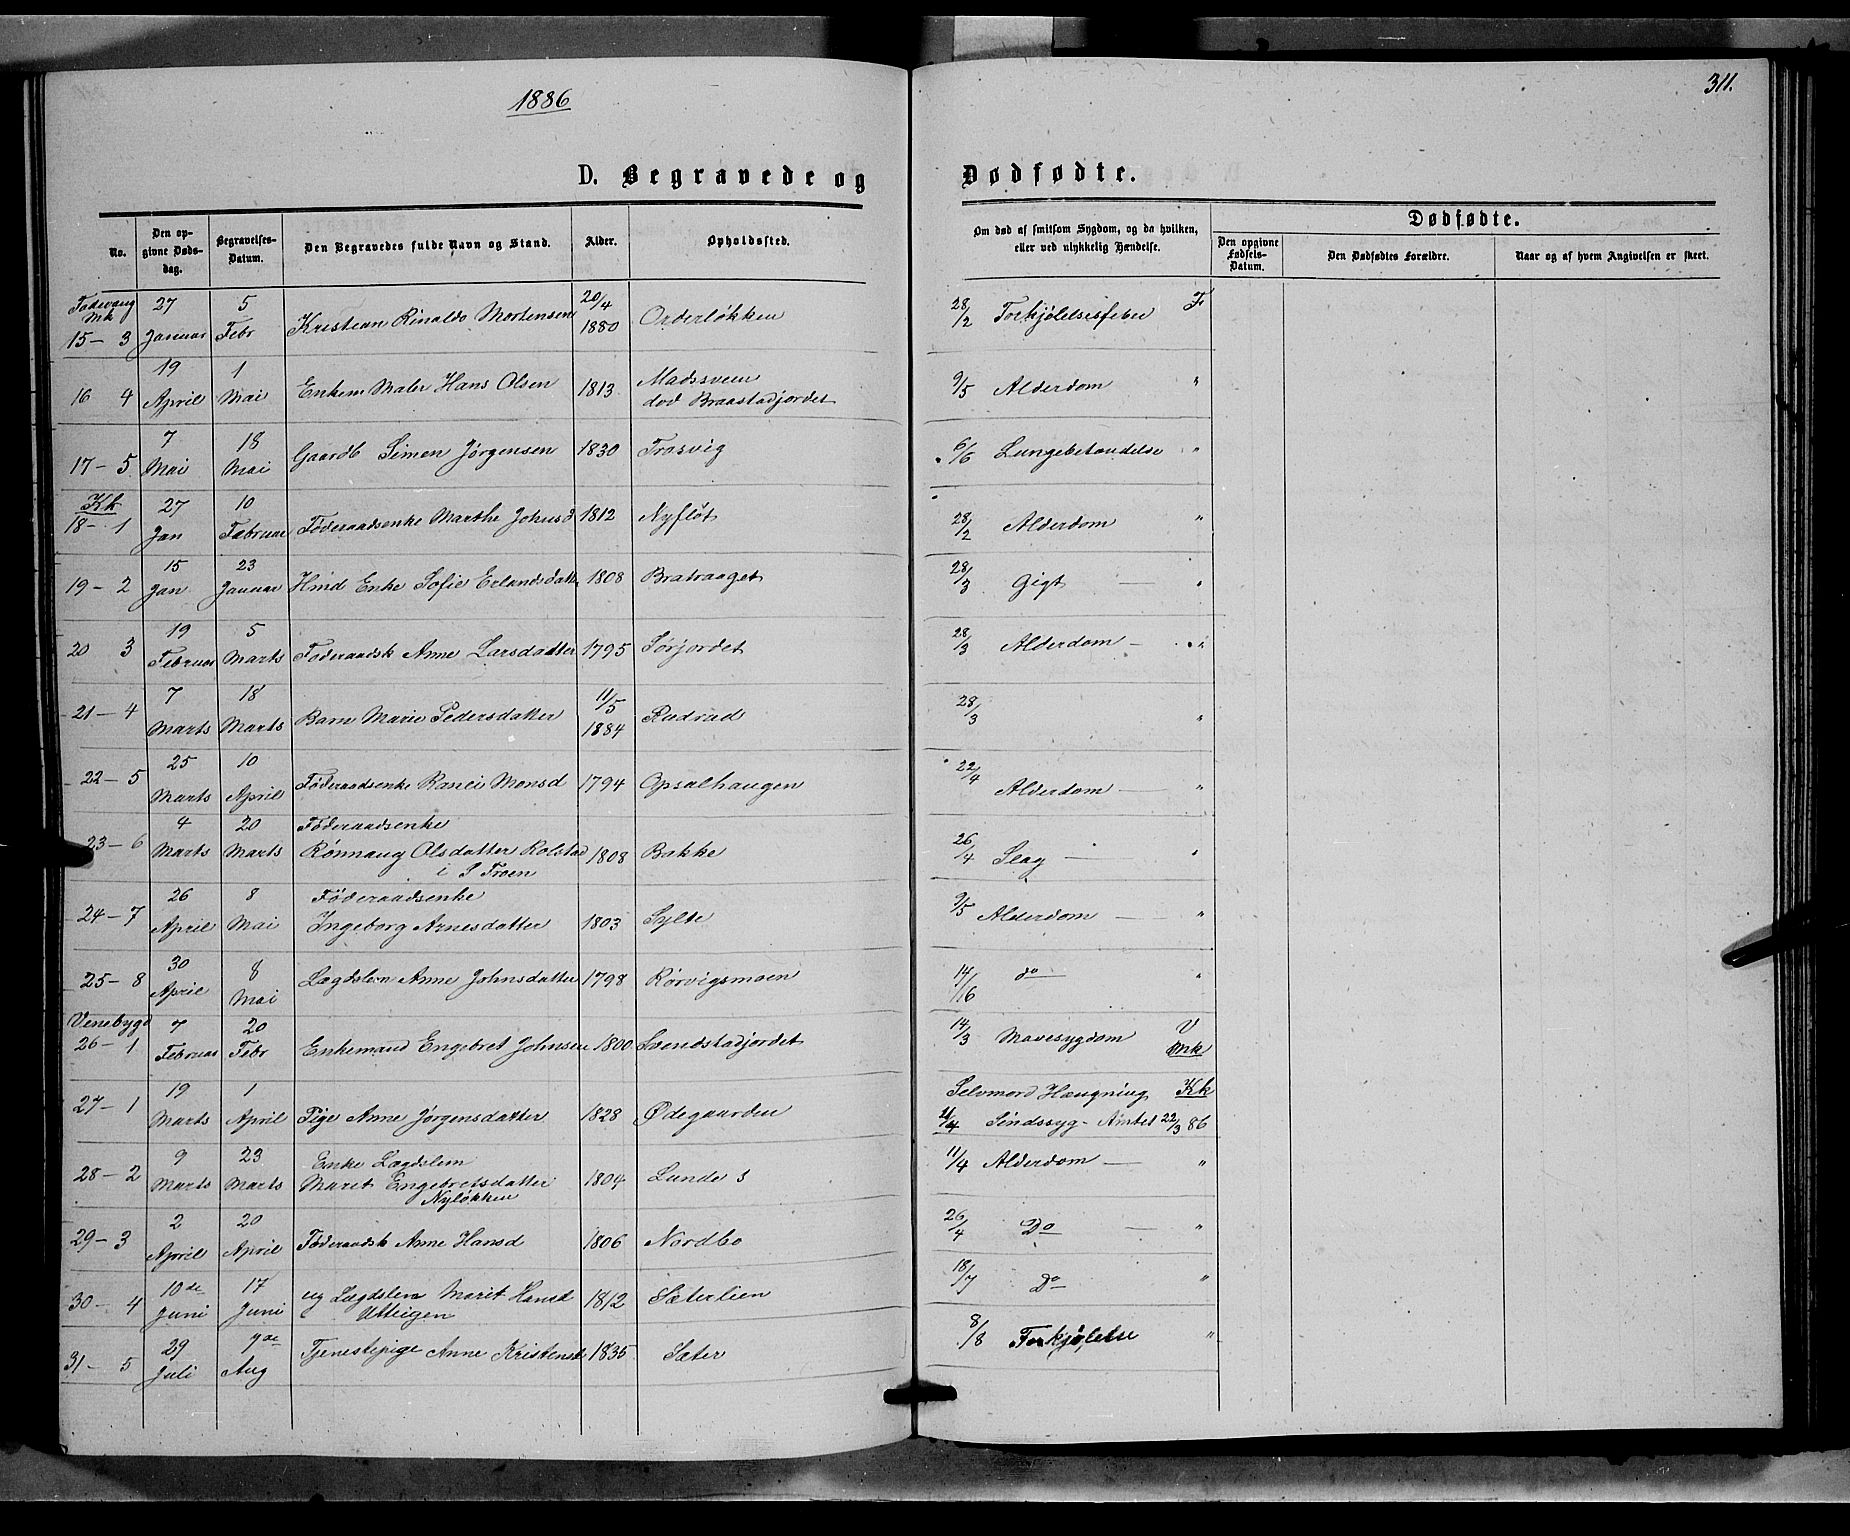 1886
311.
D. Begravede og Dødfødte.
No.
Den opgivne Dødsdag.
Begravelses-Datum.
Den Begravedes fulde Navn og Stand.
Alder.
Opholdssted.
Om død af smitsom Sygdom, og da hvilken, eller ved ulykkelig Hændelse.
Dødfødte.
Den opgivne Fødsels-Datum.
Den Dødfødtes Forældre.
Naar og af hvem Angivelsen er skeet.
Mk
15 - 3 27 Januar 5 Febr Kristian Rinaldo Mortensen 20/4 1880 Orderløkken 28/2 Forkjølelsesfeber F
16 4 19 April 1 Mai Enkem Maler Hans Olsen 1813 Madssveen død Braastadjordet 9/5 Alderdom "
17 - 5 7 Mai 18 Mai Gaardb Simen Jørgensen 1830 Trosvig 6/6 Lungebetændelse "
Kk
18 - 1 27 Jan 10 Februar Føderaadsenke Marthe Johnsd 1812 Nyfløt 28/2 Alderdom "
19 - 2 15 Jan 23 Januar Hmd Enke Sofie Erlandsdatter 1808 Bratraaget 28/3 Gigt — "
20 3 19 Februar 5 Marts Føderaadsk Anne Larsdatter 1795 Sørjordet 28/3 Alderdom — "
21 - 4 7 Marts 18 Marts Barn Marie Pedersdatter 11/5 1884 Rudrud 28/3 "
22 - 5 25 Marts 10 April Føderaadsenke Ranei Monsd 1794 Opsalhaugen 22/4 Alderdom — "
23 - 6 4 Marts 20 Marts Føderaadsenke
Rønnaug Olsdatter Rolstad 1808 Bakke 26/4 Slag — "
i S Troen
24 - 7 26 April 8 Mai Føderaadsenke
Ingeborg Arnesdatter 1803 Sylte 9/5 Alderdom — "
25 - 8 30 April 8 Mai Lægdslem Anne Johnsdatter 1798 Rørvigsmoen 14/16 do — "
Venebygd
26 - 1 7 Februar 20 Febr Enkemand Engebret Johnsen 1800 Svendstadjordet 14/3 Mavesygdom V Mk
27 - 1 19 Marts 1 April Pige Anne Jørgensdatter 1828 Ødegaarden Selvmord Hængning Kk
11/4 Sindssyg - Attest 22/3 86
28 - 2 9 Marts 23 Marts Enke Lægdslem
Marit Engebretsdatter 1804 Lunde S 11/4 Alderdom — "
Nyløkken
29 - 3 2 April 20 April Føderaadsk Anne Hansd 1806 Nordbo 26/4 Do — "
30 - 4 10de Juni 17 Juni ug Lægdslem Marit Hansd 1812 Sæterlien 18/7 Do "
Utteigen
31 - 5 29 Juli 7de Aug Tjenestepige Anne Kristensd 1835 Sæter 8/8 Forkjølelse "